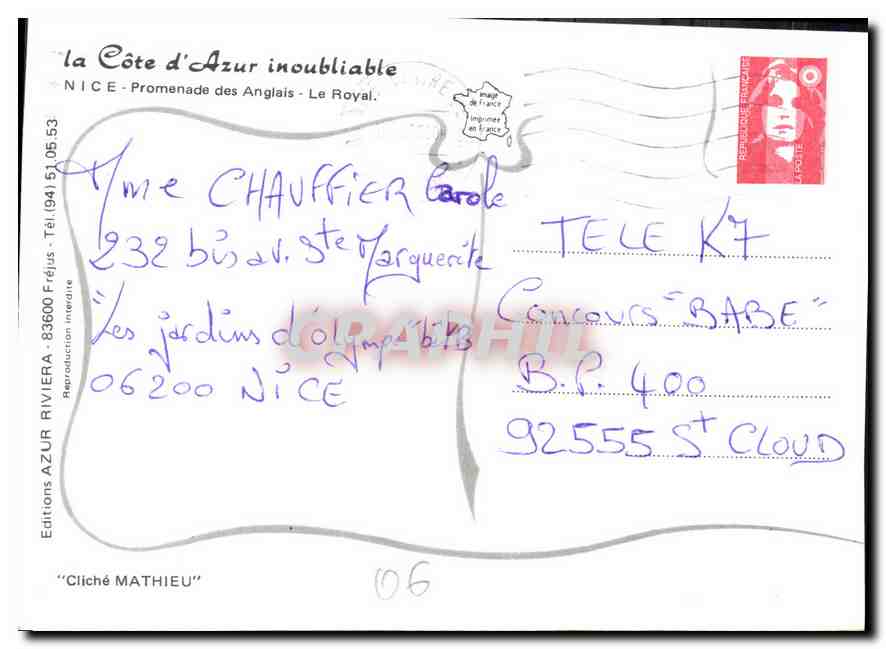 la Côte d'Azur inoubliable
NICE - Promenade des Anglais - Le Royal.
image
de France
imprimer
en France
REPUBLIQUE FRANÇAISE
LA POSTE
Editions AZUR RIVIERA - 83600 Fréjus - Tél. (94) 51.05.53
Reproduction interdite
Mme CHAUFFIER Carole
232 bis av. Ste Marguerite
"Les jardins d'olympe" bt B
06200 NICE
TELE K7
Concours "BABE"
B.P. 400
92555 St CLOUD
"Cliché MATHIEU"
06
DELCAMPHIL